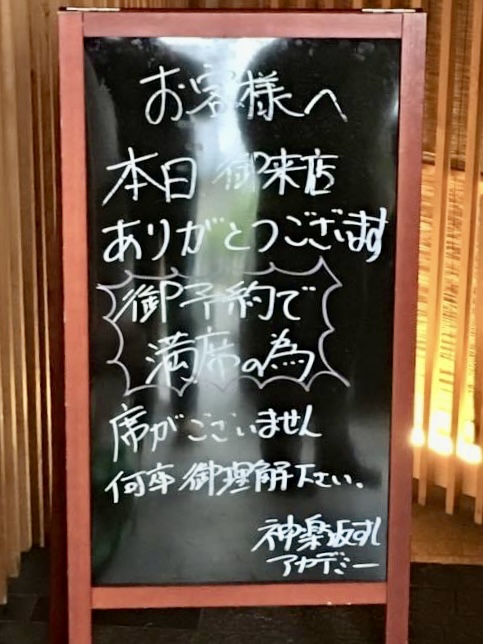 お客様へ
本日 御来店
ありがとうございます
御予約で
満席の為
席がございません
何卒 御理解下さい。
神楽坂すし
アカデミー